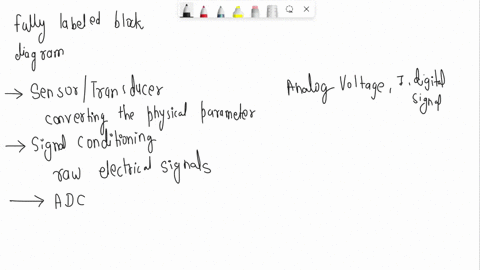 fully labeled block
diagram
→ Sensor/Transducer
converting the physical parameter
→ Signal conditioning
raw electrical signals
→ ADC
Analog Voltage, I, digital
signal